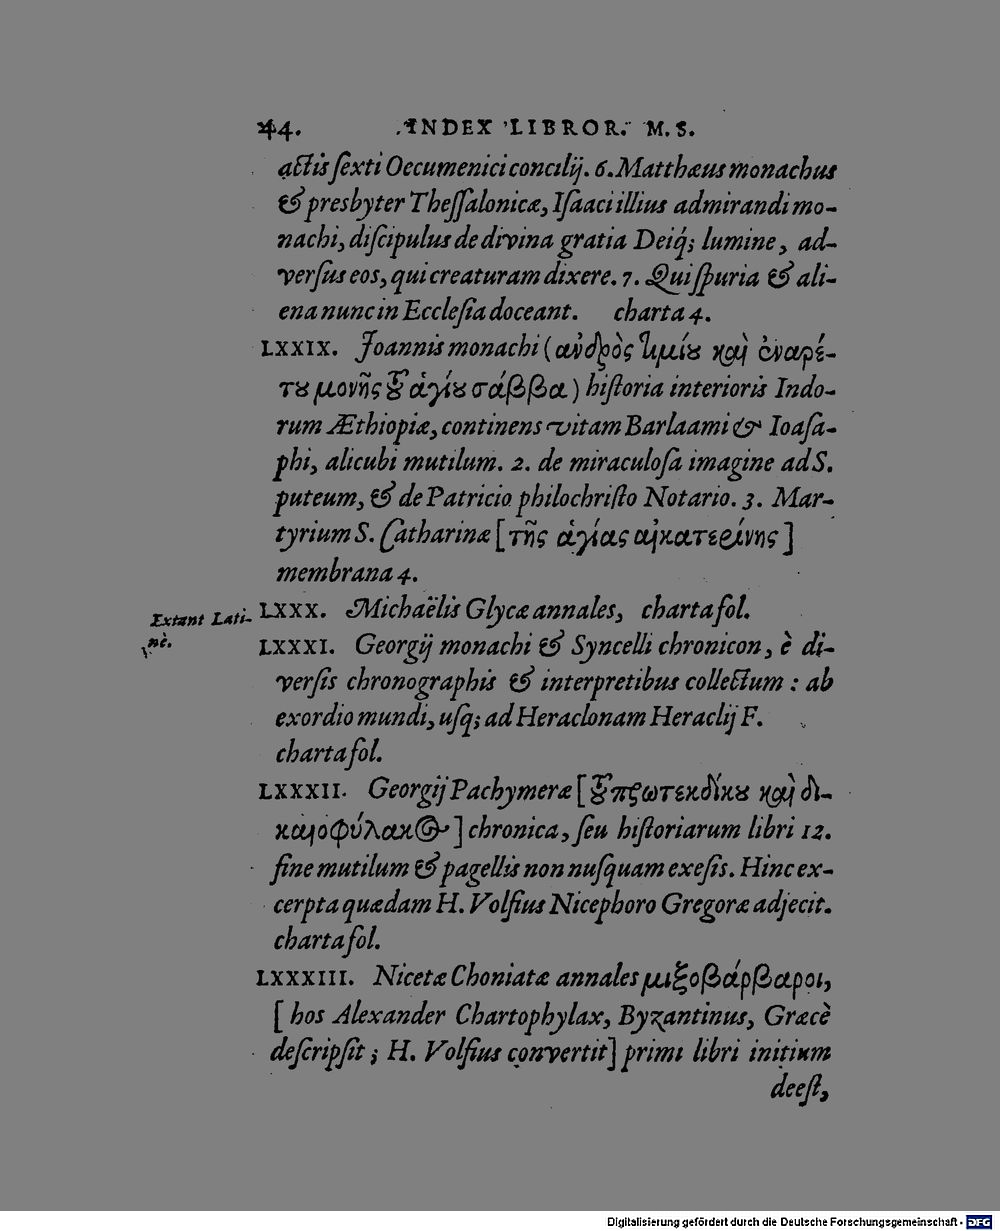 44. INDEX LIBROR. M. S.
actis ſexti Oecumenici concilij. 6. Matthæus monachus
& presbyter Theſſalonicæ, Iſaaci illius admirandi mo-
nachi, diſcipulus de divina gratia Deiq́; lumine, ad-
verſus eos, qui creaturam dixere. 7. Qui ſpuria & ali-
ena nunc in Eccleſia doceant. charta 4.
LXXIX. Joannis monachi (ανδρὸς τιμίου καὶ ἐναρέ-
του μονῆς τοῦ ἁγίου σάββα) hiſtoria interioris Indo-
rum Æthiopiæ, continens vitam Barlaami & Ioaſa-
phi, alicubi mutilum. 2. de miraculoſa imagine ad S.
puteum, & de Patricio philochriſto Notario. 3. Mar-
tyrium S. Catharinæ [τῆς ἁγίας αἰκατερίνης]
membrana 4.
LXXX. Michaëlis Glycæ annales, charta fol.
Extant Lati-
nè.
LXXXI. Georgij monachi & Syncelli chronicon, è di-
verſis chronographis & interpretibus collectum : ab
exordio mundi, uſq; ad Heraclonam Heraclij F.
charta fol.
LXXXII. Georgij Pachymeræ [τοῦ πρωτεκδίκου καὶ δι-
καιοφύλακος] chronica, ſeu hiſtoriarum libri 12.
fine mutilum & pagellis non nuſquam exeſis. Hinc ex-
cerpta quædam H. Volfius Nicephoro Gregoræ adjecit.
charta fol.
LXXXIII. Nicetæ Choniatæ annales μιξοβάρβαροι,
[hos Alexander Chartophylax, Byzantinus, Græcè
deſcripſit ; H. Volfius convertit] primi libri initium
deeſt,
Digitalisierung gefördert durch die Deutsche Forschungsgemeinschaft - DFG